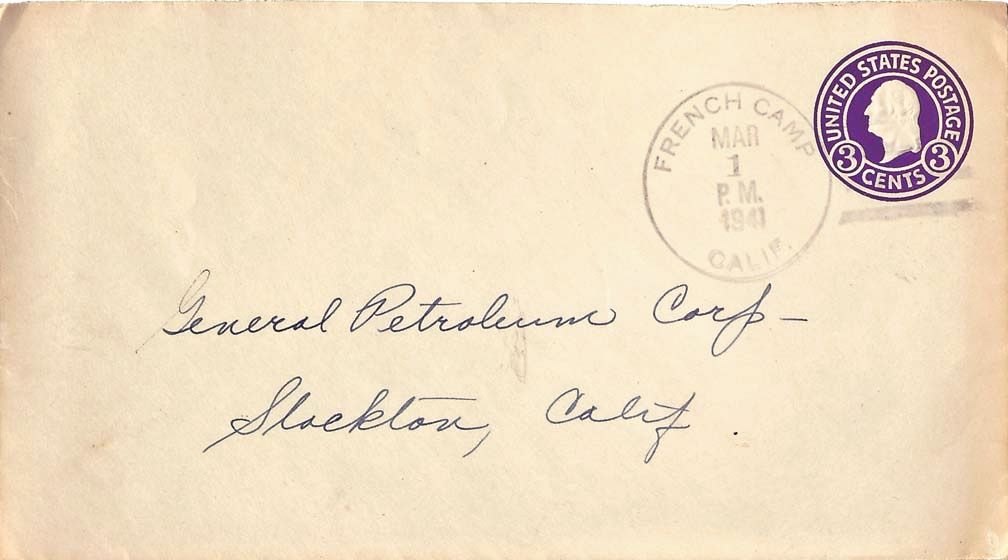 UNITED STATES POSTAGE
3 CENTS 3
FRENCH CAMP
MAR
1
P.M.
1941
CALIF.
General Petroleum Corp –
Stockton, Calif.